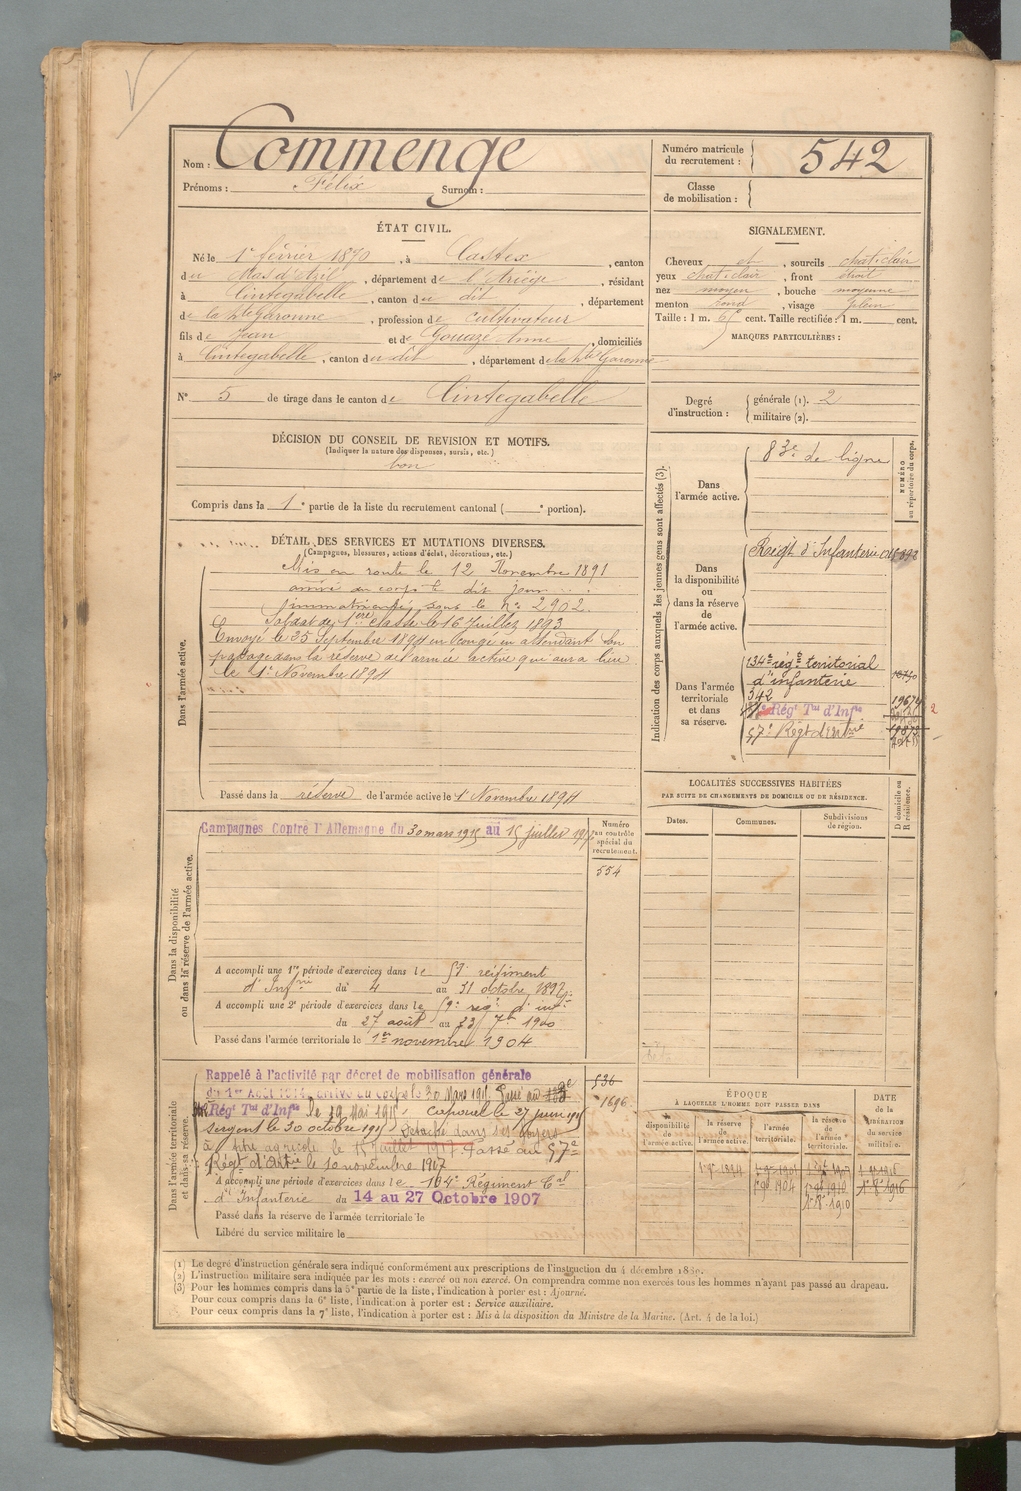 Nom : Commenge
Prénoms : Félix Surnom :
Numéro matricule du recrutement : 542
Classe de mobilisation :
ÉTAT CIVIL.
Né le 1er février 1870, à Castex, canton
du Mas d'Azil, département de l'Ariège, résidant
à Cintegabelle, canton du dit, département
de la Hte Garonne, profession de cultivateur
fils de Jean et de Gouazé Anne, domiciliés
à Cintegabelle, canton du dit, département de la Hte Garonne
No 5 de tirage dans le canton de Cintegabelle
SIGNALEMENT.
Cheveux et, sourcils chat. clair
yeux chat. clair, front étroit
nez moyen, bouche moyenne
menton rond, visage plein
Taille : 1 m. 65 cent. Taille rectifiée : 1 m. cent.
MARQUES PARTICULIÈRES :
Degré d'instruction : générale (1). 2
militaire (2).
DÉCISION DU CONSEIL DE REVISION ET MOTIFS.
(Indiquer la nature des dispenses, sursis, etc.)
bon
Compris dans la 1e partie de la liste du recrutement cantonal ( e portion).
DÉTAIL DES SERVICES ET MUTATIONS DIVERSES.
(Campagnes, blessures, actions d'éclat, décorations, etc.)
Dans l'armée active.
Mis en route le 12 Novembre 1891
arrivé au corps le dit jour
immatriculé sous le no 2902.
Soldat de 1ère classe le 16 Juillet 1893
Envoyé le 25 Septembre 1894 en congé en attendant son
passage dans la réserve de l'armée active qui aura lieu
le 1er Novembre 1894
Passé dans la réserve de l'armée active le 1er Novembre 1894
Indication des corps auxquels les jeunes gens sont affectés (3).
NUMÉRO au répertoire du corps.
Dans l'armée active.
83e de ligne
Dans la disponibilité ou dans la réserve de l'armée active.
Régt d'Infanterie
Dans l'armée territoriale et dans sa réserve.
134e régt territorial
d'infanterie
342
Régt Tal d'Infie
57e Régt d'Artie
LOCALITÉS SUCCESSIVES HABITÉES
PAR SUITE DE CHANGEMENTS DE DOMICILE OU DE RÉSIDENCE.
Dates. Communes. Subdivisions de région. D domicile ou R résidence.
Dans la disponibilité ou dans la réserve de l'armée active.
Campagnes Contre l'Allemagne du 30 mars 1915 au 15 juillet 1917
Numéro au contrôle spécial du recrutement.
554
A accompli une 1re période d'exercices dans le 59e régiment
d'Infrie du 4 au 31 octobre 1897
A accompli une 2e période d'exercices dans le 59e régt d'infie
du 27 août au 23 7bre 1900
Passé dans l'armée territoriale le 1er novembre 1904
Dans l'armée territoriale et dans sa réserve.
Rappelé à l'activité par décret de mobilisation générale
du 1er Août 1914, arrivé au corps le 30 Mars 1915. Passé au
Régt Tal d'Infie le 19 Mai 1915. Caporal le 27 juin 1915
Sergent le 30 octobre 1915 Détaché dans ses foyers
à titre agricole le 15 juillet 1917. Passé au 57e
Régt d'Artie le 10 novembre 1917
536
1696
A accompli une période d'exercices dans le 134e Régiment Tal
d'Infanterie du 14 au 27 Octobre 1907
Passé dans la réserve de l'armée territoriale le
Libéré du service militaire le
ÉPOQUE
A LAQUELLE L'HOMME DOIT PASSER DANS
la disponibilité de l'armée active. la réserve de l'armée active. l'armée territoriale. la réserve de l'armée territoriale.
DATE de la LIBÉRATION du service militaire.
(1) Le degré d'instruction générale sera indiqué conformément aux prescriptions de l'instruction du 4 décembre 1889.
(2) L'instruction militaire sera indiquée par les mots : exercé ou non exercé. On comprendra comme non exercés tous les hommes n'ayant pas passé au drapeau.
(3) Pour les hommes compris dans la 5e partie de la liste, l'indication à porter est : Ajourné.
Pour ceux compris dans la 6e liste, l'indication à porter est : Service auxiliaire.
Pour ceux compris dans la 7e liste, l'indication à porter est : Mis à la disposition du Ministre de la Marine. (Art. 4 de la loi.)